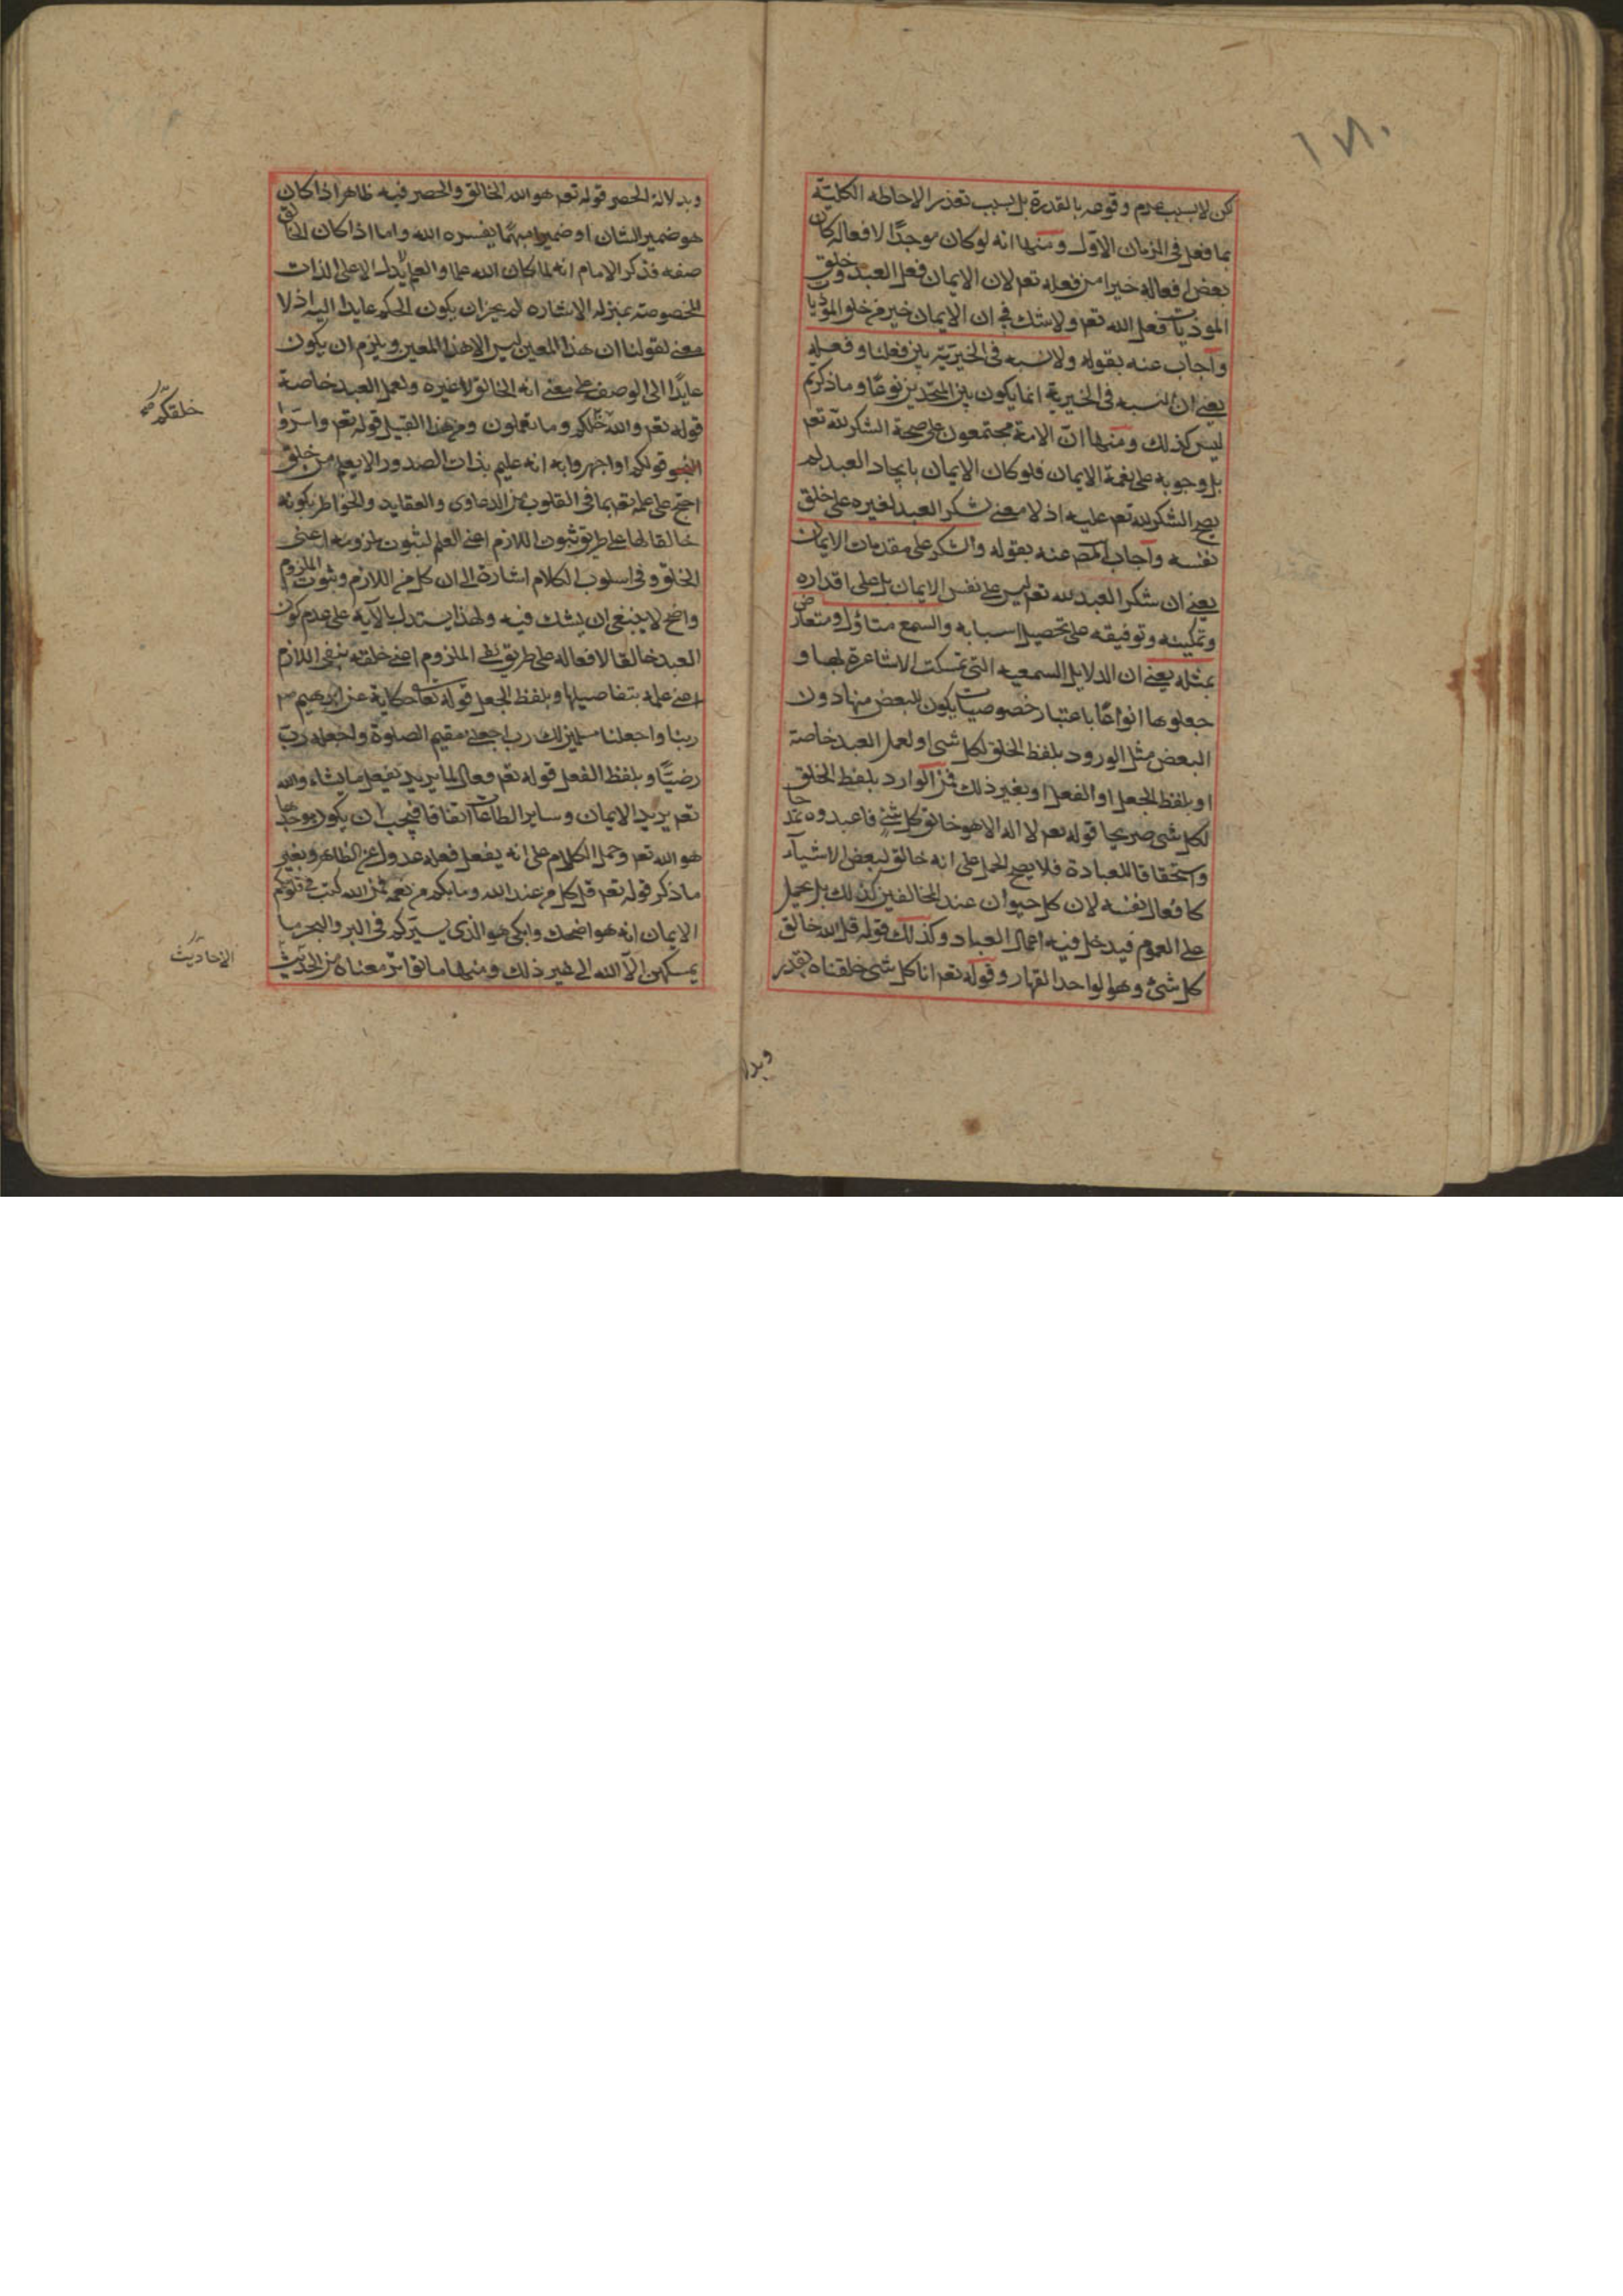 ١٧٠
كن لا بسبب عدم وقوعه بالقدرة بل بسبب تعذر الاحاطه الكليّة
بما فعل فى الزمان الاول ومنها انه لو كان موجدًا لافعاله كان
بعض افعاله خيرا من فعله تعم لان الايمان فعل العبد وخلق
الموذيات فعل الله تعم ولا شك فى ان الايمان خير من خلق الموذيات
وآجاب عنه بقوله ولا نسبه فى الخيريّة بين فعلنا وفعله
يعنى ان النسبه فى الخيرية انما يكون بين المتحدين نوعًا وما ذكرتم
ليس كذلك ومنها انّ الامة مجتمعون على صحة الشكر لله تعم
بل وجوبه على نعمة الايمان فلو كان الايمان بايجاد العبد لم
يصح الشكر لله تعم عليه اذ لا معنى لشكر العبد لغيره على خلق
نفسه وآجاب المص عنه بقوله والشكر على مقدمات الايمان
يعنى ان شكر العبد لله تعم ليس على نفس الايمان بل على اقداره
وتمكينه وتوفيقه على تحصيل اسبابه والسمع متاوّل ومتعارض
بمثله يعنى ان الدلايل السمعيه التى تمسكت الاشاعرة بها و
جعلوها انواعًا باعتبار خصوصيات يكون للبعض منها دون
البعض مثل الورود بلفظ الخلق لكل شى او لعمل العبد خاصة
او بلفظ الجعل او الفعل او بغير ذلك فمن الوارد بلفظ الخلق
لكل شى صريحا قوله تعم لا اله الا هو خالق كل شئ فاعبدوه تمدحا
واستحقاقا للعبادة فلا يصح الحمل على انه خالق لبعض الاشيآء
كافعال نفسه لان كل حيوان عند المخالفين كذلك بل يحمل
على العموم فيدخل فيه اعمال العباد وكذلك قوله قل الله خالق
كل شئ وهو الواحد القهار وقوله تعم انا كل شى خلقناه بقدر
وبدلا
وبدلالة الحصر قوله تعم هو الله الخالق والحصر فيه ظاهر اذا كان
هو ضمير الشان او ضميرا مبهمًا يفسره الله واما اذا كان الخالق
صفه فذكر الامام انه لما كان الله علما والعلم لا يدل الا على الذات
المخصوصة بمنزله الاشاره لم يجز ان يكون الحكم عايدا اليه اذ لا
معنى لقولنا ان هذا المعين ليس الا هذا المعين ويلزم ان يكون
عايدًا الى الوصف على معنى انه الخالق لا غيره ولعمل العبد خاصة
قوله تعم والله خلقكم وما تعملون ومن هذا القبيل قوله تعم واسرّوا
قولكم او اجهروا به انه عليم بذات الصدور الا يعلم من خلق
احتج على علمه تعم بما فى القلوب من الدعاوى والعقايد والخواطر بكونه
خالقا لها على طريق ثبوت اللازم اعنى العلم لثبوت ملزومه اعنى
الخلق وفى اسلوب الكلام اشارة الى ان كل من اللازم وثبوت الملزوم
واضح لا ينبغى ان يشك فيه ولهذا يستدل بالآية على عدم كون
العبد خالقا لافعاله على طريق نفى الملزوم اعنى خلقه بنفى اللازم
اعنى علمه بتفاصيلها وبلفظ الجعل قوله تعالى حكاية عن ابرهيم
ربنا واجعلنا مسلمين لك رب اجعلنى مقيم الصلوة واجعله رب
رضيًّا وبلفظ الفعل قوله تعم فعال لما يريد يفعل ما يشاء والله
تعم يريد الايمان وساير الطاعات اتفاقا فيجب ان يكون موجدها
هو الله تعم وحمل الكلام على انه يفعل فعله عدول عن الظاهر وبغير
ما ذكر قوله تعم قل كل من عند الله وما بكم من نعمه فمن الله كتب فى قلوبكم
الايمان انه هو اضحك وابكى هو الذى يسيّركم فى البر والبحر ما
يمسكهن الّا الله الى غير ذلك ومنها ما تواتر معناه من الحديث
خلقكم صح
الاحاديث